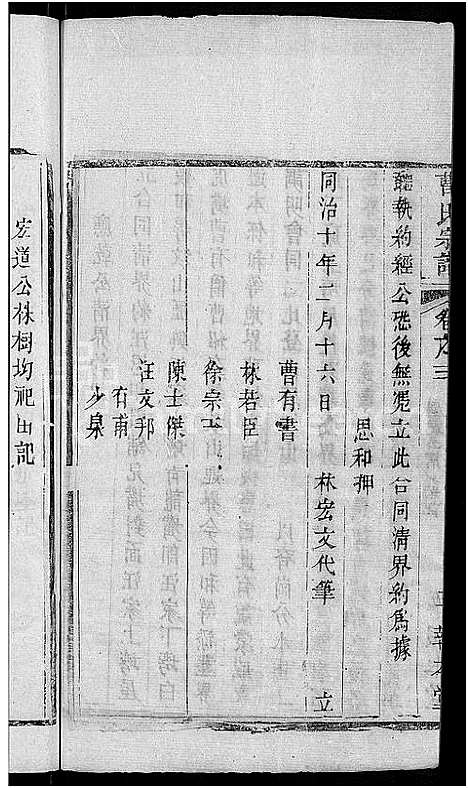 曹氏宗譜
卷之三
聽執約經公恐後無憑立此合同清界約爲據
思和押
同治十年二月十六日 林宏文代筆 立
曹有書
林若臣
徐宗玉
陳士傑
汪文邦
有甫
少泉
宏道公株樹均祀田記